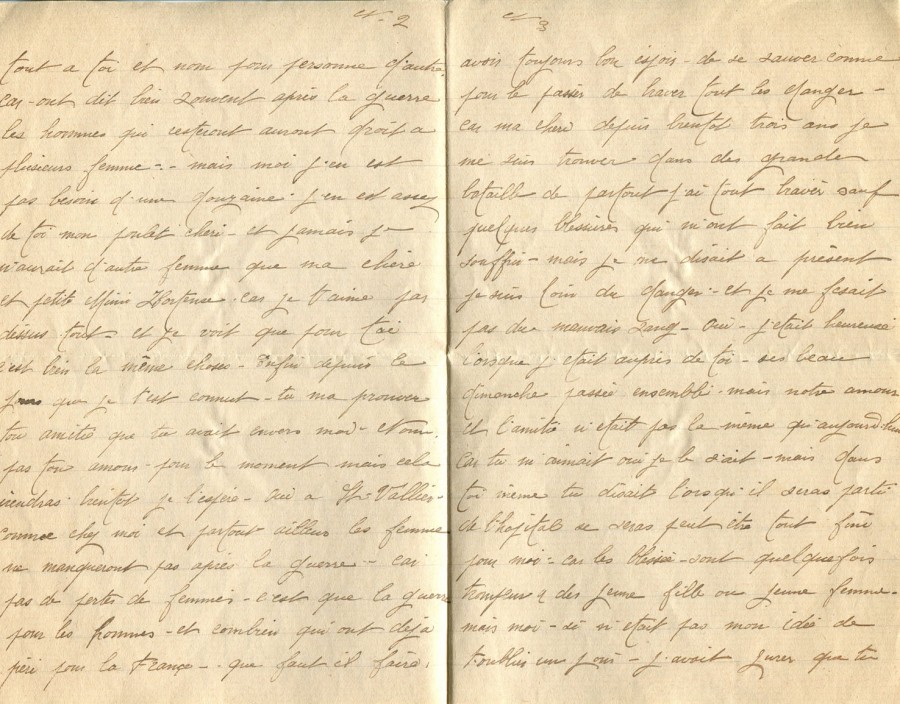 N° 2
tout a toi et nom pour personne d'autre
car - ont dit bien souvent après la guerre
les hommes qui resteront auront droit a
plusieurs femme - mais moi j'en est
pas besoin d'une douzaine j'en est assez
de toi mon poulet chéri - et jamais je
n'aurait d'autre femme que ma chère
et petite Mimi Hortense - car je t'aime par
dessus tout - et je voit que pour toi
c'est bien la même chose - Enfin depuis le
jours que je t'est connut - tu ma prouver
ton amitié que tu avait envers moi - Nom
pas ton amour - pour le moment mais cela
viendras bientôt je l'espère - Oui a St Vallier
comme chez moi et partout ailleur les femme
ne manqueront pas après la guerre - car
pas de pertes de femmes - c'est que la guerre
pour les hommes - et combien qui ont deja
péri pour la France - que faut il faire
N° 3
avoir toujours bon espoir - de se sauver comme
pour le passer de traver tout les danger -
car ma cheri depuis bientot trois ans je
me suis trouver dans des grande
bataille de partout j'ai tout traver sauf
quelques blessures qui m'ont fait bien
souffrir - mais je me disait a présent
je suis loin du danger - et je me fesait
pas du mauvais sang - Oui - j'etait heureuse
lorsque j'etait auprès de toi - ses beau
dimanche passée ensemble - mais notre amour
et l'amitié n'etait pas la même qu'aujourd'hui
car tu m'aimait oui je le sait - mais dans
toi même tu disait lorsqu'il seras parti
de l'hopital se seras peut être tout fini
pour moi - car les blessé - sont quelquefois
trompeur a des jeune fille ou jeune femme -
mais moi - se n'etait pas mon idée de
t'oublier un jour - j'avait jurer que tu